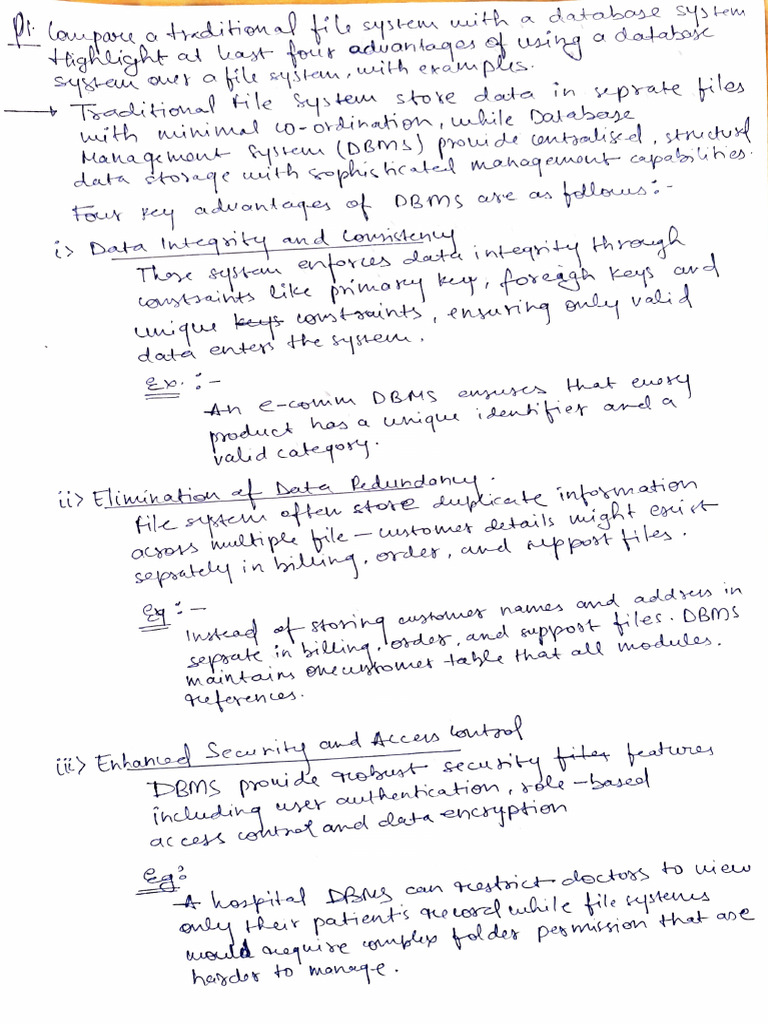 P1. Compare a traditional file system with a database system
Highlight at least four advantages of using a database
system over a file system, with examples.
→ Traditional file system store data in seprate files
with minimal co-ordination, while Database
Management System (DBMS) provide centralised, structured
data storage with sophisticated management capabilities.
Four key advantages of DBMS are as follows:-
i> Data Integrity and Consistency
These system enforces data integrity through
constraints like primary key, foreign keys and
unique keys constraints, ensuring only valid
data enters the system.
Ex. :-
An e-comm DBMS ensures that every
product has a unique identifier and a
valid category.
ii> Elimination of Data Redundancy.
File system often store duplicate information
across multiple file - customer details might exist
seprately in billing, order, and support files.
Eg :-
Instead of storing customer names and address in
seprate in billing, order, and support files. DBMS
maintains one customer table that all modules.
references.
iii> Enhanced Security and Access Control
DBMS provide robust security files features
including user authentication, role-based
access control and data encryption
Eg:
A hospital DBMS can restrict doctors to view
only their patient's record while file systems
would require complex folder permission that are
harder to manage.